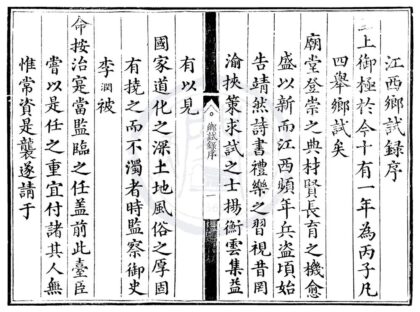 江西鄉試錄序
上御極於今十有一年為丙子凡
四舉鄉試矣
廟堂登崇之典材賢長育之機愈
盛以新而江西頻年兵盜頃始
告靖然詩書禮樂之習視昔罔
渝挾策求試之士揚衡雲集益
鄉試錄序
一
有以見
國家道化之深土地風俗之厚固
有撓之而不濁者時監察御史
李潤被
命按治寔當監臨之任蓋前此臺臣
嘗以是任之重宜付諸其人無
惟常資是襲遂請于